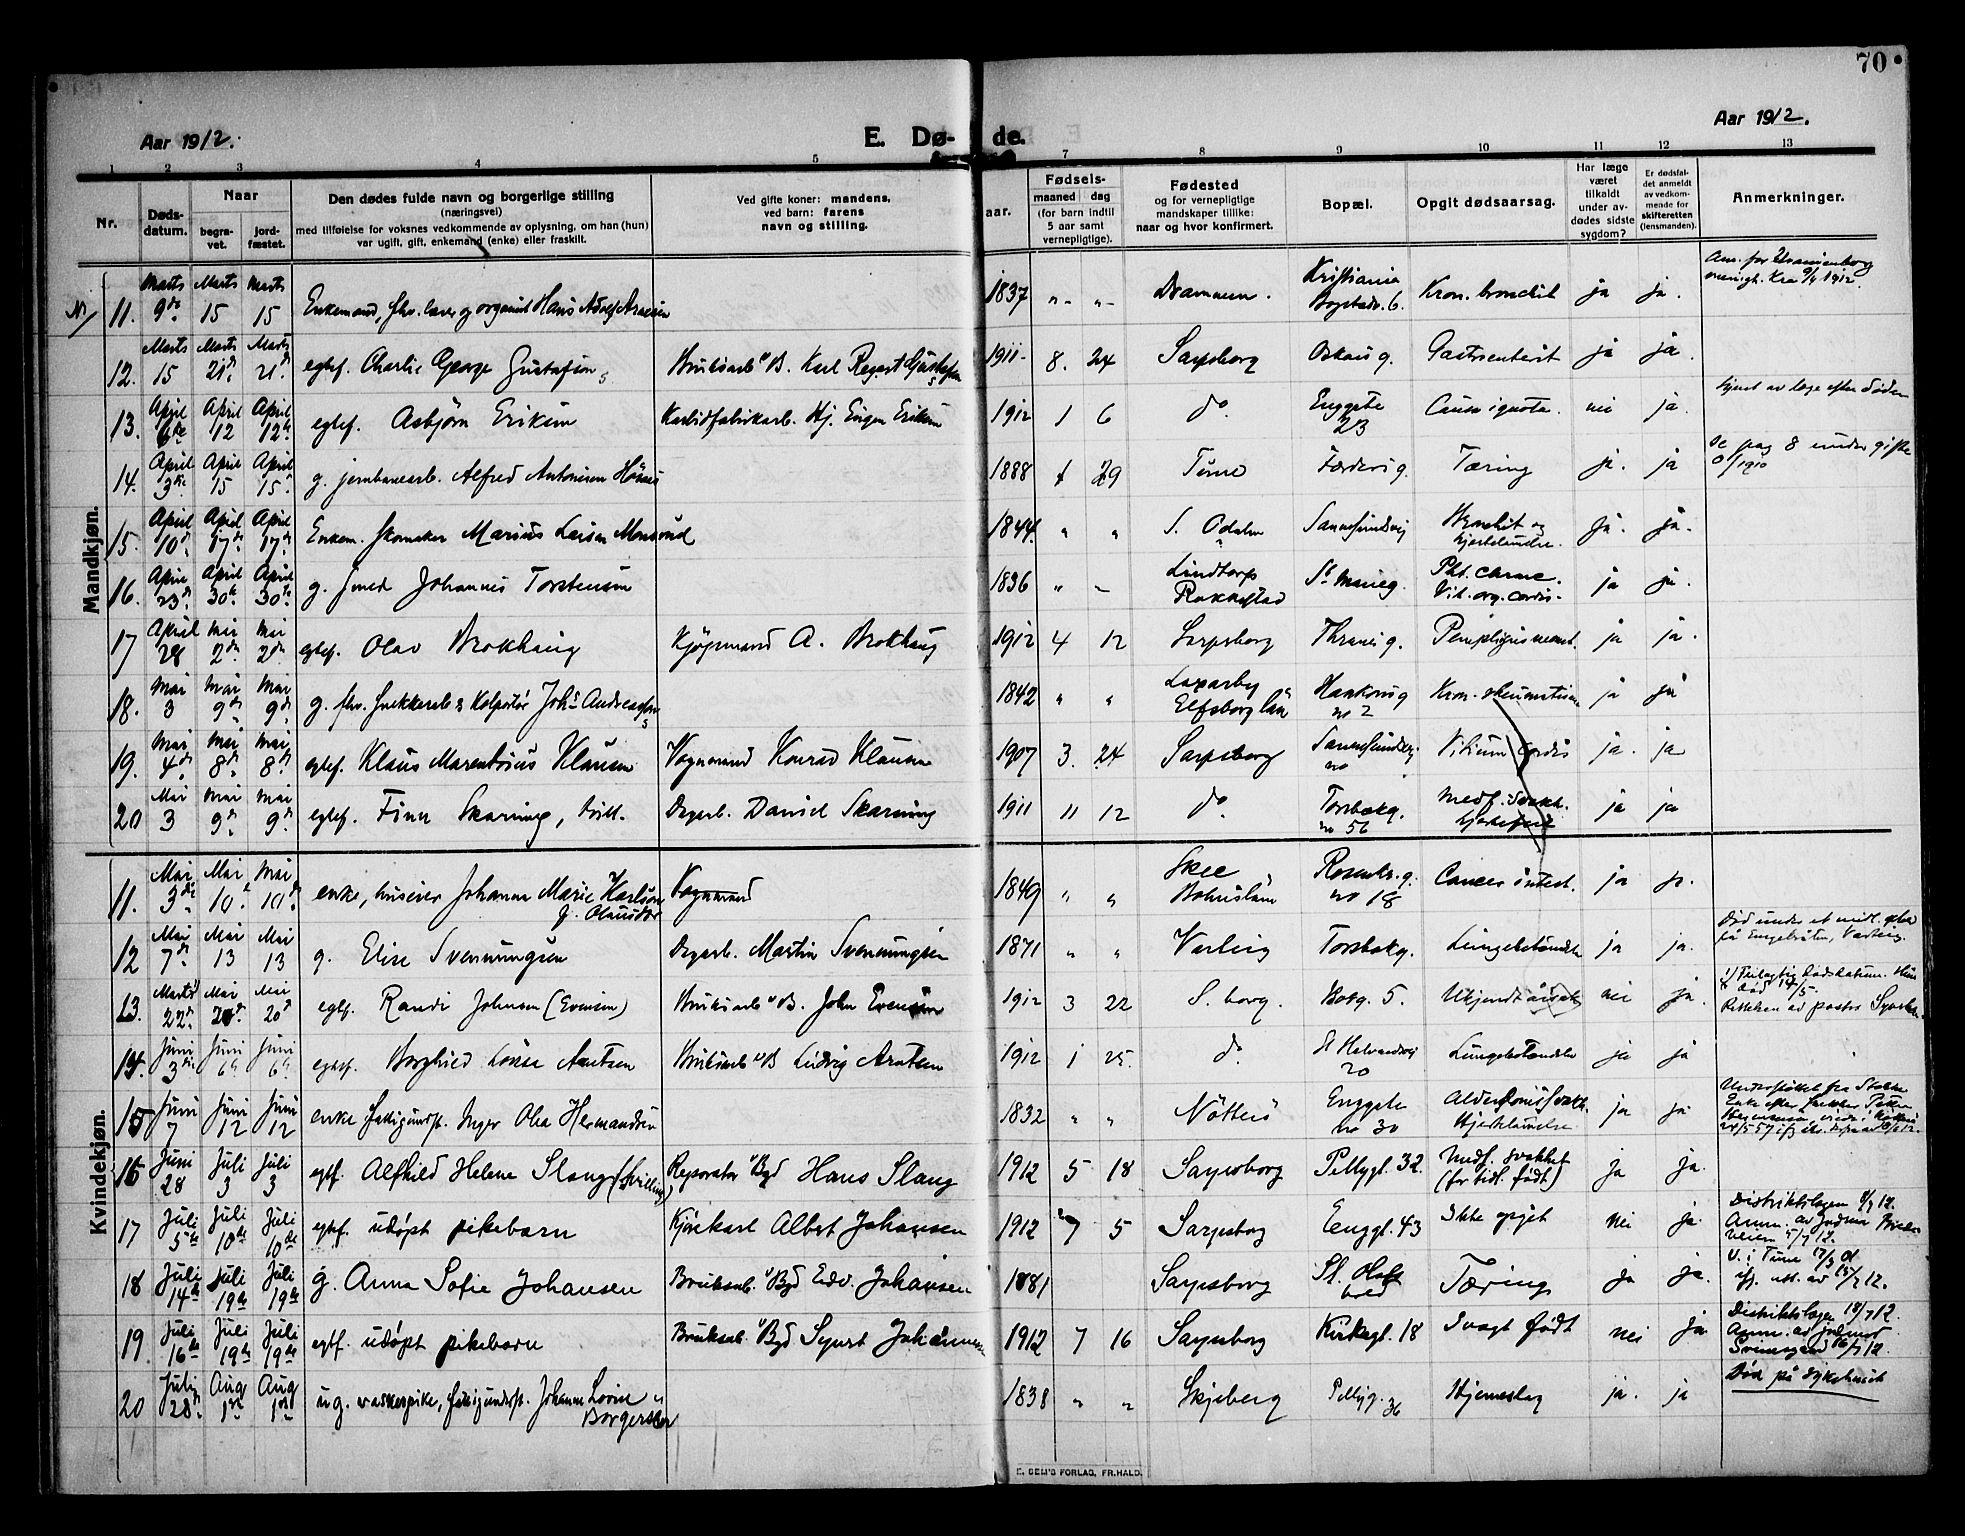 70
Aar 1912.
E. Dø- de.
Aar 1912.
1 2 3 4 5 7 8 9 10 11 12 13
Nr.
Døds-
datum.
Naar
begra-
vet.
jord-
fæstet.
Den dødes fulde navn og borgerlige stilling
(næringsvei)
med tilføielse for voksnes vedkommende av oplysning, om han (hun)
var ugift, gift, enkemand (enke) eller fraskilt.
Ved gifte koner: mandens,
ved barn: farens
navn og stilling.
aar.
Fødsels-
maaned dag
(for barn indtil
5 aar samt
vernepligtige).
Fødested
og for vernepligtige
mandskaper tillike:
naar og hvor konfirmert.
Bopæl.
Opgit dødsaarsag.
Har læge
været
tilkaldt
under av-
dødes sidste
sygdom?
Er dødsfal-
det anmeldt
av vedkom-
mende for
skifteretten
(lensmanden).
Anmerkninger.
Mandkjøn.
11. Marts 9de Marts 15 Marts 15 Enkemand, fhv. lærer og organist Hans Adolf 1837 " " Drammen. Kristiania Bogstadv. 6. Kron. bronchit ja ja.
12. Marts 15 Marts 21de Marts 21de egtef. Charlie George Gustafson Bruksarb. v B. Karl 1911 8. 24 Sarpsborg Oskars g. Gastroenterit ja ja.
13. April 6te April 12 April 12te egtef. Asbjørn Eriksen Karbidfabrikarb. Hj. Eugen Eriksen 1912 1 6 do. Enggate 23 Causa ignota. nei ja. Synet av læge efter døden
14. April 3die April 15 April 15 g. jernbanearb. Alfred Antonisen 1888 1 29 Tune Færderg. Tæring ja. ja Se pag 8 under gifte 1910
15. April 10de April 17de April 17de Enkem. Skomaker Marius Larsen 1844. " " S. Odalen Sannesundvej Bronchit og hjertelammelse. ja. ja.
16. April 23de April 30te April 30te g. smed Johannes Torstensen 1836 " " St. Marieg. Vit. org. cordis. ja ja.
17 April 28 Mai 2den Mai 2den egtef. Olav Brokhaug Kjøpmand A. Brokhaug 1912 4 12 Sarpsborg Thranes g. ja ja.
18. Mai 3 Mai 9de Mai 9de g. fhv. snekkerarb. & Kolportør Johs Andreassen 1842 " " Laxarby Elfsborg län Haakons g no 2 Kron. rheumatisme ja ja
19. Mai 4de Mai 8de Mai 8de egtef. Klaus Marentsius Klausen Vognmand Konrad Klausen 1907 3. 24 Sarpsborg Sannesundvej. no Vitium cordis ja. ja
20 Mai 3 Mai 9de Mai 9de egtef. Finn Skarning, tvill. Dagarb. David Skarning 1911 11 12 do. Torsbækg. no 56 Medf. svakh. hjertefeil ja ja
Kvindekjøn.
11. Mai 3die Mai 10de Mai 10de enke, huseier Johanne Marie Karlsen f. Olausdtr Vognmand 1849 " " Skee Bohuslän Rosenkr. g. no 18 Cancer intest. ja ja.
12 Mai 7de Mai 13 Mai 13 g. Elise Svenningsen Dagarb. Martin Svenningsen 1871 " " Varteig Torsbækg. Lungebetændelse ja ja. Død under et midl. ophold på Engebråten, Varteig.
13. Marts 22de Mai 20de Mai 20de egtf. Randi Johnsen (Evensen) Bruksarb. v B. John Evensen 1912 3 22 S. borg. Bokg. 5. Ukjendt årsak nei ja. 1) Feilagtig dødsdatum. Hun død 14/5.
14. Juni 3die Juni 6te Juni 6te egtef. Borghild Lovise Arntsen Bruksarb. v B Ludvig Arntsen 1912 1 25. do. St Halvardsvej 20 Lungebetændelse ja ja
15 Juni 7 Juni 12 Juni 12 enke fattigunderst. Inger Olea Hermansen 1832 " " Nötterö Enggate no 30 Alderdomssvakh. Hjertelammelse ja ja
16 Juni 28 Juli 3 Juli 3 egtf. Alfhild Helene Slang (tvilling) Reparatør v Bgd Hans Slang 1912 5 18 Sarpsborg Pellygt. 32. Medf. svakhet (for tidl. født) ja ja.
17 Juli 5te Juli 10de Juli 10de egtef. udøpt pikebarn Kjørekarl Albert Johansen 1912 7 5 Sarpsborg Enggt. 43 Ikke opgit nei ja. Distriktslægen 8/7 12. Anm. av jordmor
18 Juli 14de Juli 19de Juli 19de g. Anna Sofie Johansen Bruksarb. v Bgd Edv. Johansen 1881 Sarpsborg St. Olafs Tæring ja ja. V. i Tune
19. Juli 16de Juli 19de Juli 19de egtf. udøpt pikebarn Bruksarb. v Bgd Sigurt Johannesen 1912 7 16 Sarpsborg Kirkegt. 18 Svagt født nei ja Distriktslægen 18/7 12. Anm. av jordmor Svinesgard 16/7 12.
20 Juli 28de Aug 1ste Aug 1ste ug. vaskerpike, fattigunderst. Johanne Lovise Borgersen 1838 " " Skjeberg Pellyg. 36 Hjerneslag ja. ja Død på sykehuset
E. SEM'S FORLAG, FR.HALD.